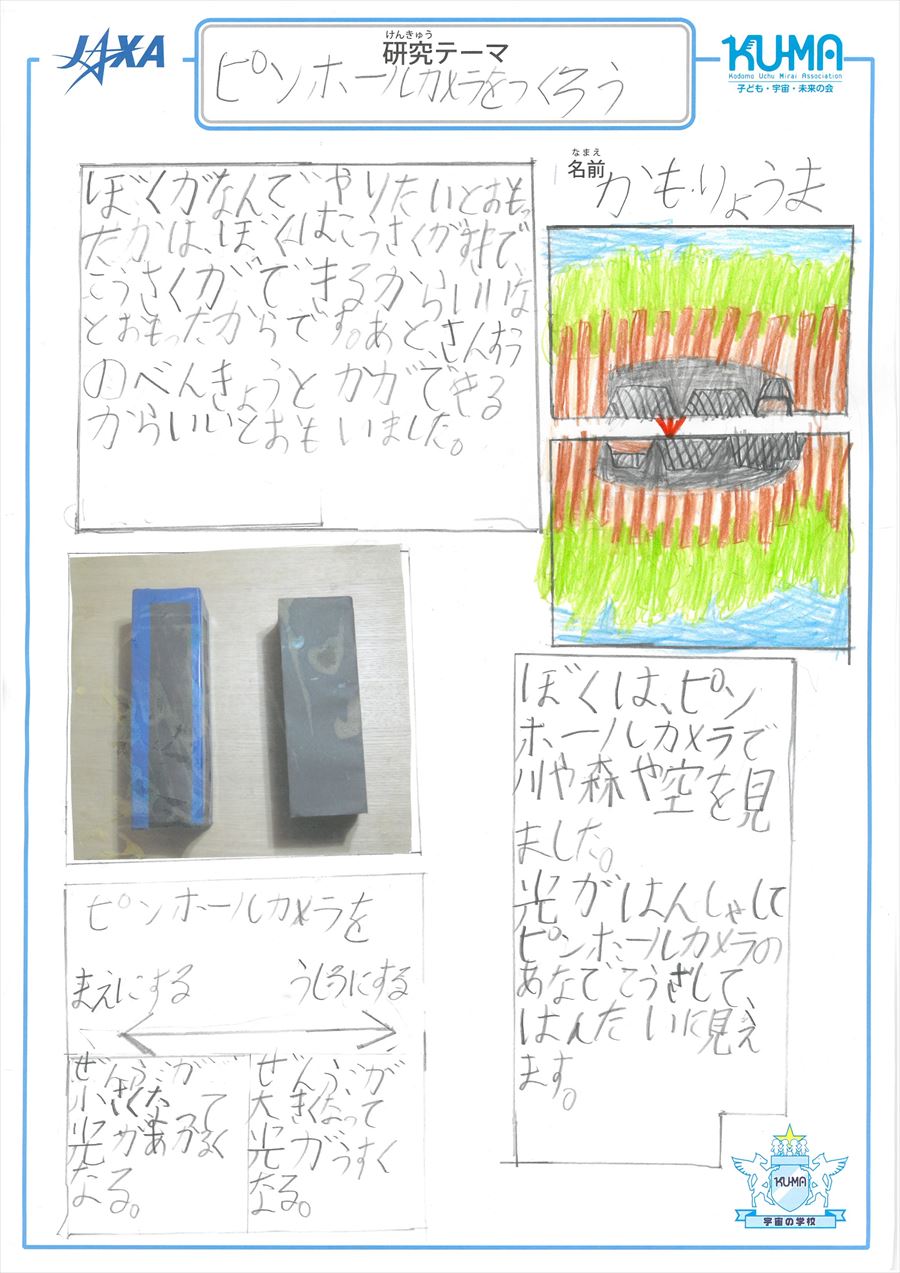 JAXA
けんきゅう
研究テーマ
ピンホールカメラをつくろう
KU-MA
Kodomo Uchu Mirai Association
子ども・宇宙・未来の会
なまえ
名前
かも・りょうま
ぼくがなんでやりたいとおもっ
たかは、ぼくはこうさくがすきで
こうさくができるからいいな
とおもったからです。あと、さんすう
のべんきょうとかができる
からいいとおもいました。
ピンホールカメラを
まえにする
うしろにする
ぜんぶが
小さくなって
光があかるく
なる。
ぜんぶが
大きくなって
光がうすく
なる。
ぼくは、ピン
ホールカメラで
川や森や空を見
ました。
光がはんしゃして
ピンホールカメラの
あなでこうさして、
はんたいに見え
ます。
KU-MA
宇宙の学校